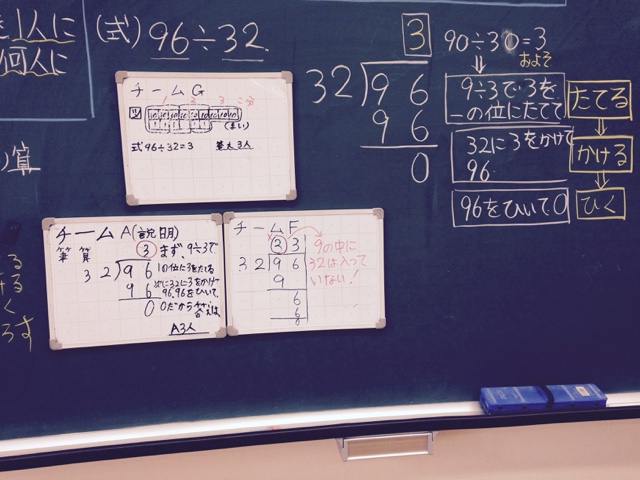 1人に
何人に
(式) 96÷32.
算
チームG
1 2 3
(まい)
式 96÷32=3 答え3人
チームA(説明)
筆算
3 まず、9÷3で
32)96 10位に3をたてる
96 次に32に3をかけ
96,96をひいて
0 0だから答えは
A3人
チームF
33 9の中に
32)96 32は入って
9 いない!
6
6
0
3
32)96
96
0
90÷30=3
およそ
⇓
9÷3で3を
一の位にたてて
たてる
⇓
32に3をかけて
96
かける
⇓
96をひいて0
ひく
る
る
く
ろす